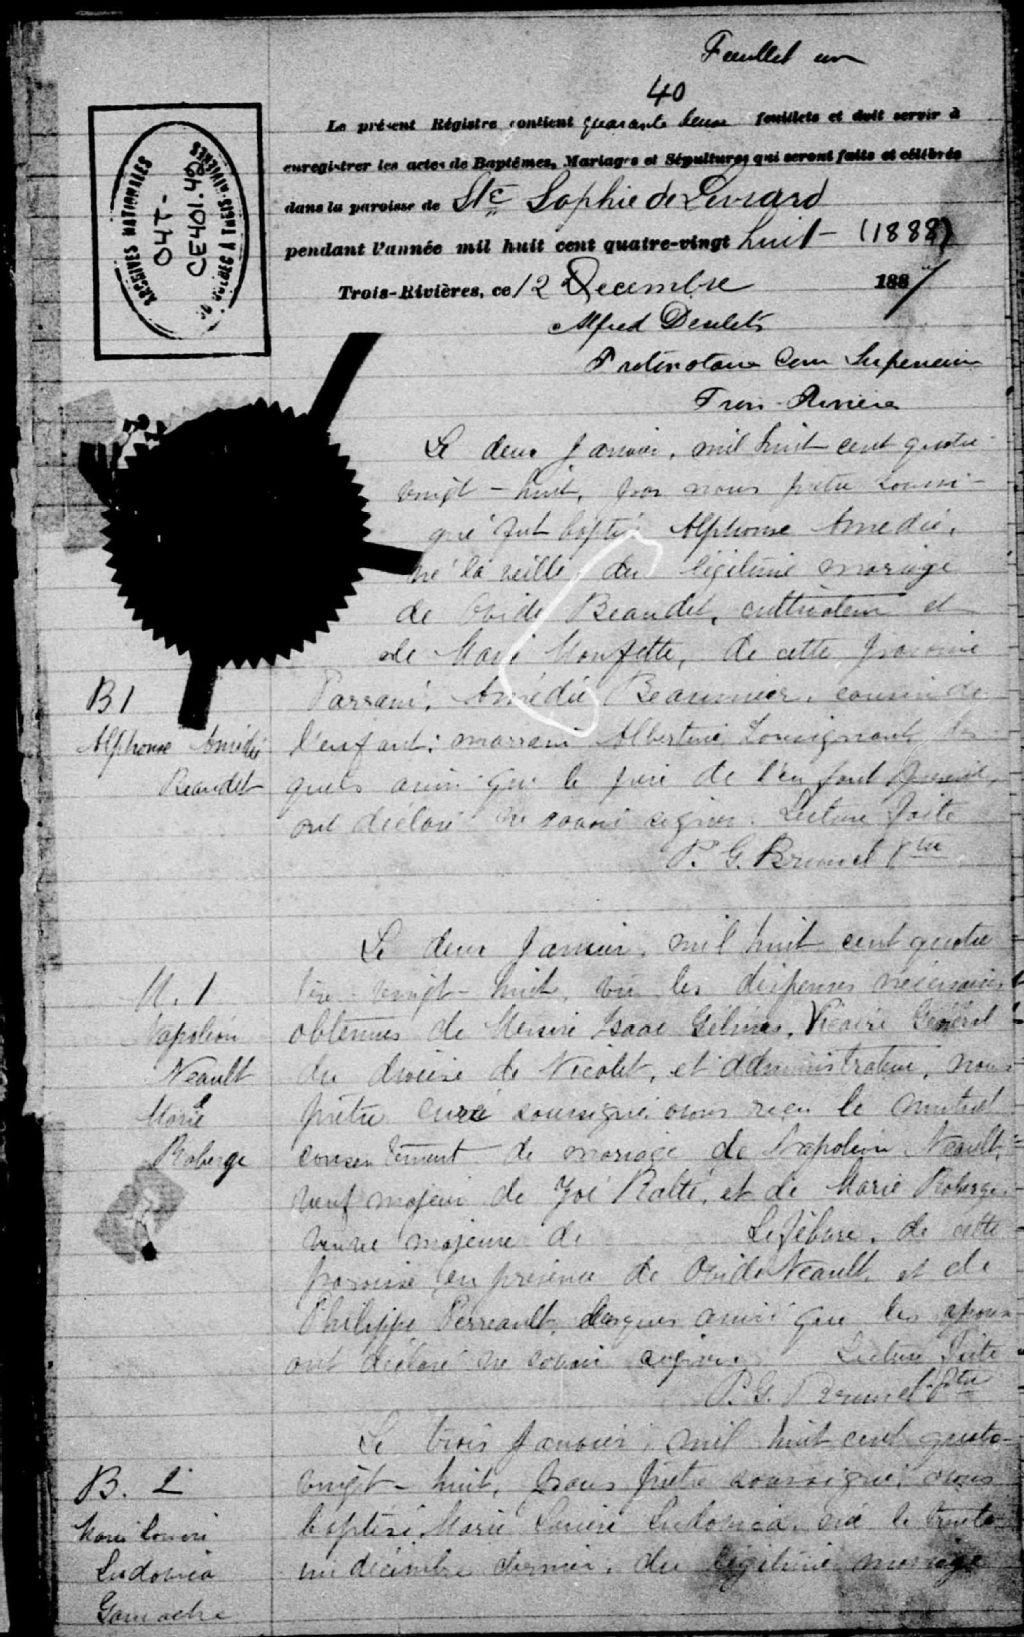 Feuillet un
40
Le présent Régistre contient quarante feuillets et doit servir à
enregistrer les actes de Baptêmes, Mariages et Sépultures qui seront faits et célébrés
dans la paroisse de Ste Sophie de Levrard
pendant l'année mil huit cent quatre-vingt huit (1888)
Trois-Rivières, ce 12 Decembre 1887
Alfred Desilets
Protonotaire Cour Superieure
Trois-Rivières
ARCHIVES NATIONALES
04T-
CE401.48
DU QUÉBEC À TROIS-RIVIÈRES
Le deux Janvier, mil huit cent quatre
vingt-huit, par nous prêtre soussi-
gné fut baptisé Alphonse Amedié,
né la veille, du légitime mariage
de Ovide Beaudet, cultivateur et
de Marie Monfette, de cette paroisse
B1
Parrain, Amédié Beaumier, cousin de
Alphonse Amédié
l'enfant; marraine Albertine Lonsignant, les
Beaudet
quels ainsi que le père de l'enfant présent,
ont déclaré ne savoir signer. Lecture faite
P. G. Brunel Ptre
Le deux Janvier, mil huit cent quatre
M. 1
vingt-huit, vu les dispenses nécessaires
Napoléon
obtenues de Messire Isaac Gélinas, Vicaire Général
Neault
du diocèse de Nicolet, et administrateur, nous
Marie
prêtre curé soussigné avons reçu le mutuel
Roberge
consentement de mariage de Napoléon Neault,
veuf majeur de Zoé Ratté, et de Marie Roberge,
veuve majeure de Lefebvre, de cette
paroisse en présence de Ovide Neault, et de
Philippe Perreault, lesquels ainsi que les époux
ont déclaré ne savoir signer. Lecture faite
P. G. Brunel Ptre
Le trois Janvier, mil huit cent quatre-
B. 2
vingt-huit, nous prêtre soussigné, avons
Marie
baptisé Marie Ludovica, née le trente
Ludovica
un décembre dernier, du légitime mariage
Gamache